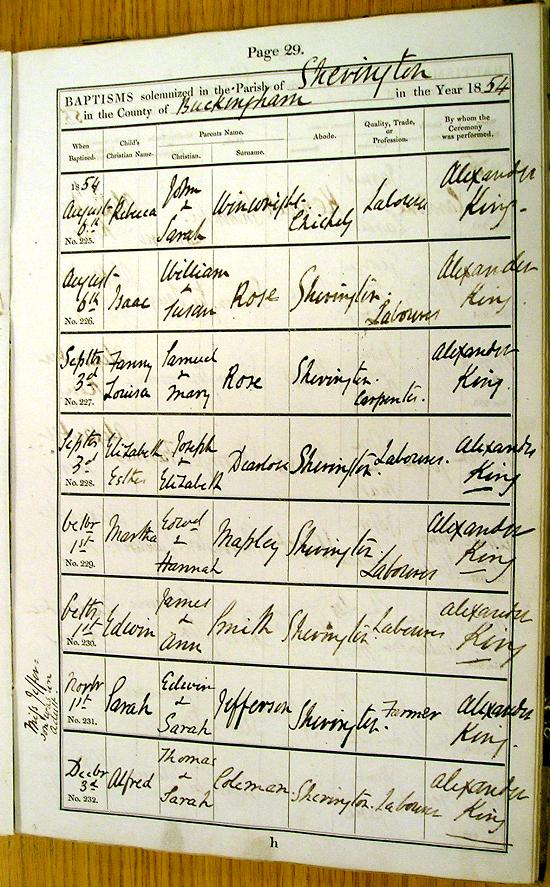 Page 29.
BAPTISMS solemnized in the Parish of Shevington
in the County of Buckingham in the Year 1854
When Baptized. Child's Christian Name. Parents Name. Christian. Surname. Abode. Quality, Trade, or Profession. By whom the Ceremony was performed.
1854 August 6th No. 225. Rebecca John & Sarah Winwright Chichely Labourer Alexander King.
August 6th No. 226. Isaac William & Susan Rose Shevington. Labourer Alexander King.
Septbr 3d No. 227. Fanny Louisa Samuel & Mary Rose Shevington. Carpenter. Alexander King.
Septbr 3d No. 228. Elizabeth Esther Joseph & Elizabeth Shevington. Labourer. Alexander King
Octbr 1st No. 229. Martha Edwd & Hannah Mapley Shevington. Labourer Alexander King
Octbr 1st No. 230. Edwin James & Ann Smith Shevington. Labourer Alexander King
Novbr 1st No. 231. Sarah Edwin & Sarah Jefferson Shevington. Farmer Alexander King.
Decbr 3d No. 232. Alfred Thomas & Sarah Coleman Shevington. Labourer Alexander King
Miss Jeffer-
son
h